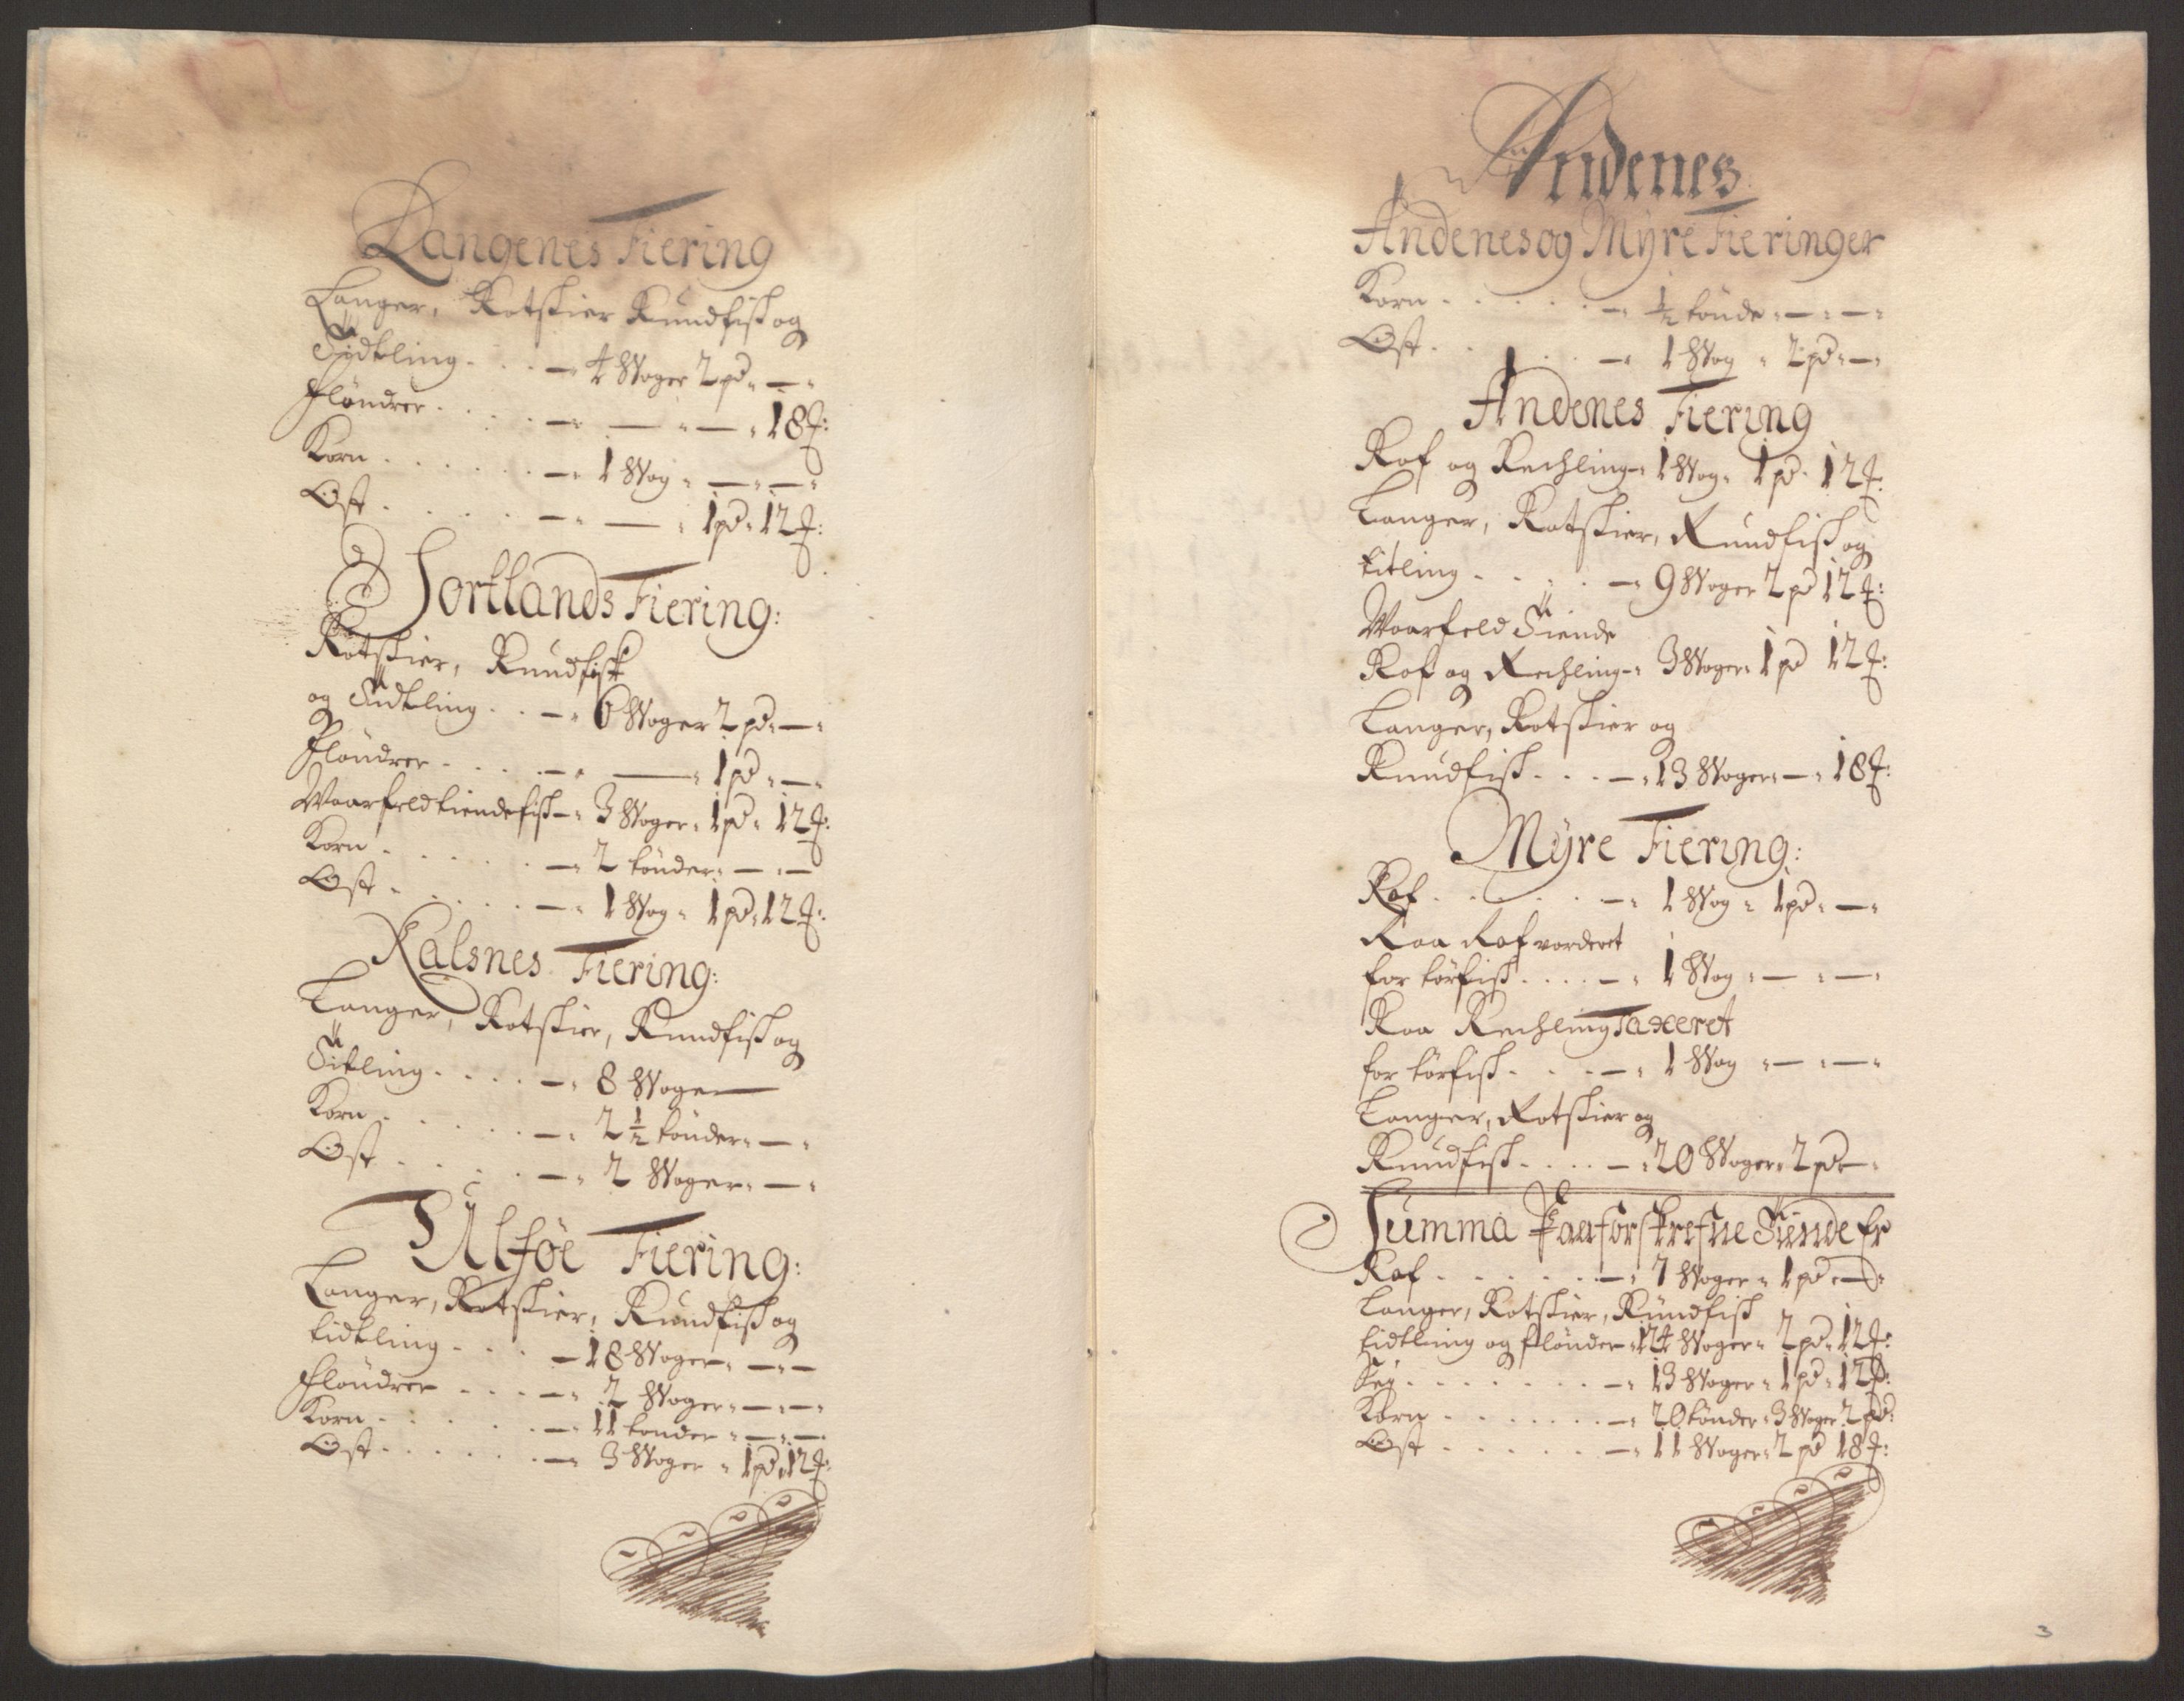 Langenes Fiering
Langer, Rotskier Rundfisk og
Tidtling - - - 4 Woger 2 pd - —
Flöndrer - - - — - — - 18 ℔:
Korn - - - 1 Wog - — - —
Ost - - - — - 1 pd - 12 ℔:
Sortlands Fiering:
Rotskier, Rundfisk
og Tidtling - - 6 Woger 2 pd - —
Flöndrer - - - — - 1 pd - —
Waarfeld tiendefisk - 3 Woger - 1 pd - 12 ℔:
Korn - - - 2 tönder - — - —
Ost - - - 1 Wog - 1 pd - 12 ℔:
Kalsnes Fiering:
Langer, Rotskier, Rundfisk og
Titling - - - 8 Woger —
Korn - - - 2 1/2 tönder - —
Ost - - - 2 Woger - —
Ulföe Fiering:
Langer, Rotskier, Rundfisk og
tidtling - - - 18 Woger - — - —
Flöndrer - - - 2 Woger - — - —
Korn - - - 11 tönder - — - —
Ost - - - 3 Woger - 1 pd - 12 ℔:
Andenes
Andenes og Myre Fieringer
Korn - - - 1/2 tönde - — - —
Ost - - - 1 Wog - 2 pd - —
Andenes Fiering
Raf og Rechling - 1 Wog - 1 pd - 12 ℔:
Langer, Rotskier, Rundfisk og
titling - - - 9 Woger 2 pd 12 ℔:
Waarfeld Tiende
Raf og Rechling - 3 Woger - 1 pd 12 ℔:
Langer, Rotskier og
Rundfisk - - - 13 Woger - — - 18 ℔:
Mÿre Fiering:
Raf - - - 1 Wog - 1 pd - —
Raa Raf vorderet
for törfisk - - - 1 Wog - — - —
Raa Rechling Taxeret
for törfisk - - - 1 Wog - — - —
Langer, Rotskier og
Rundfisk - - - 20 Woger - 2 pd —
Summa Paaforskrefne Tiende Er
Raf - - - 7 Woger - 1 pd - —
Langer, Rotskier, Rundfisk
tidtling og flönder - 124 Woger - 2 pd - 12 ℔:
Sej - - - 13 Woger - 1 pd - 12 ℔:
Korn - - - 20 tönder - 3 Woger 2 pd:
Ost - - - 11 Woger - 2 pd 18 ℔:
3